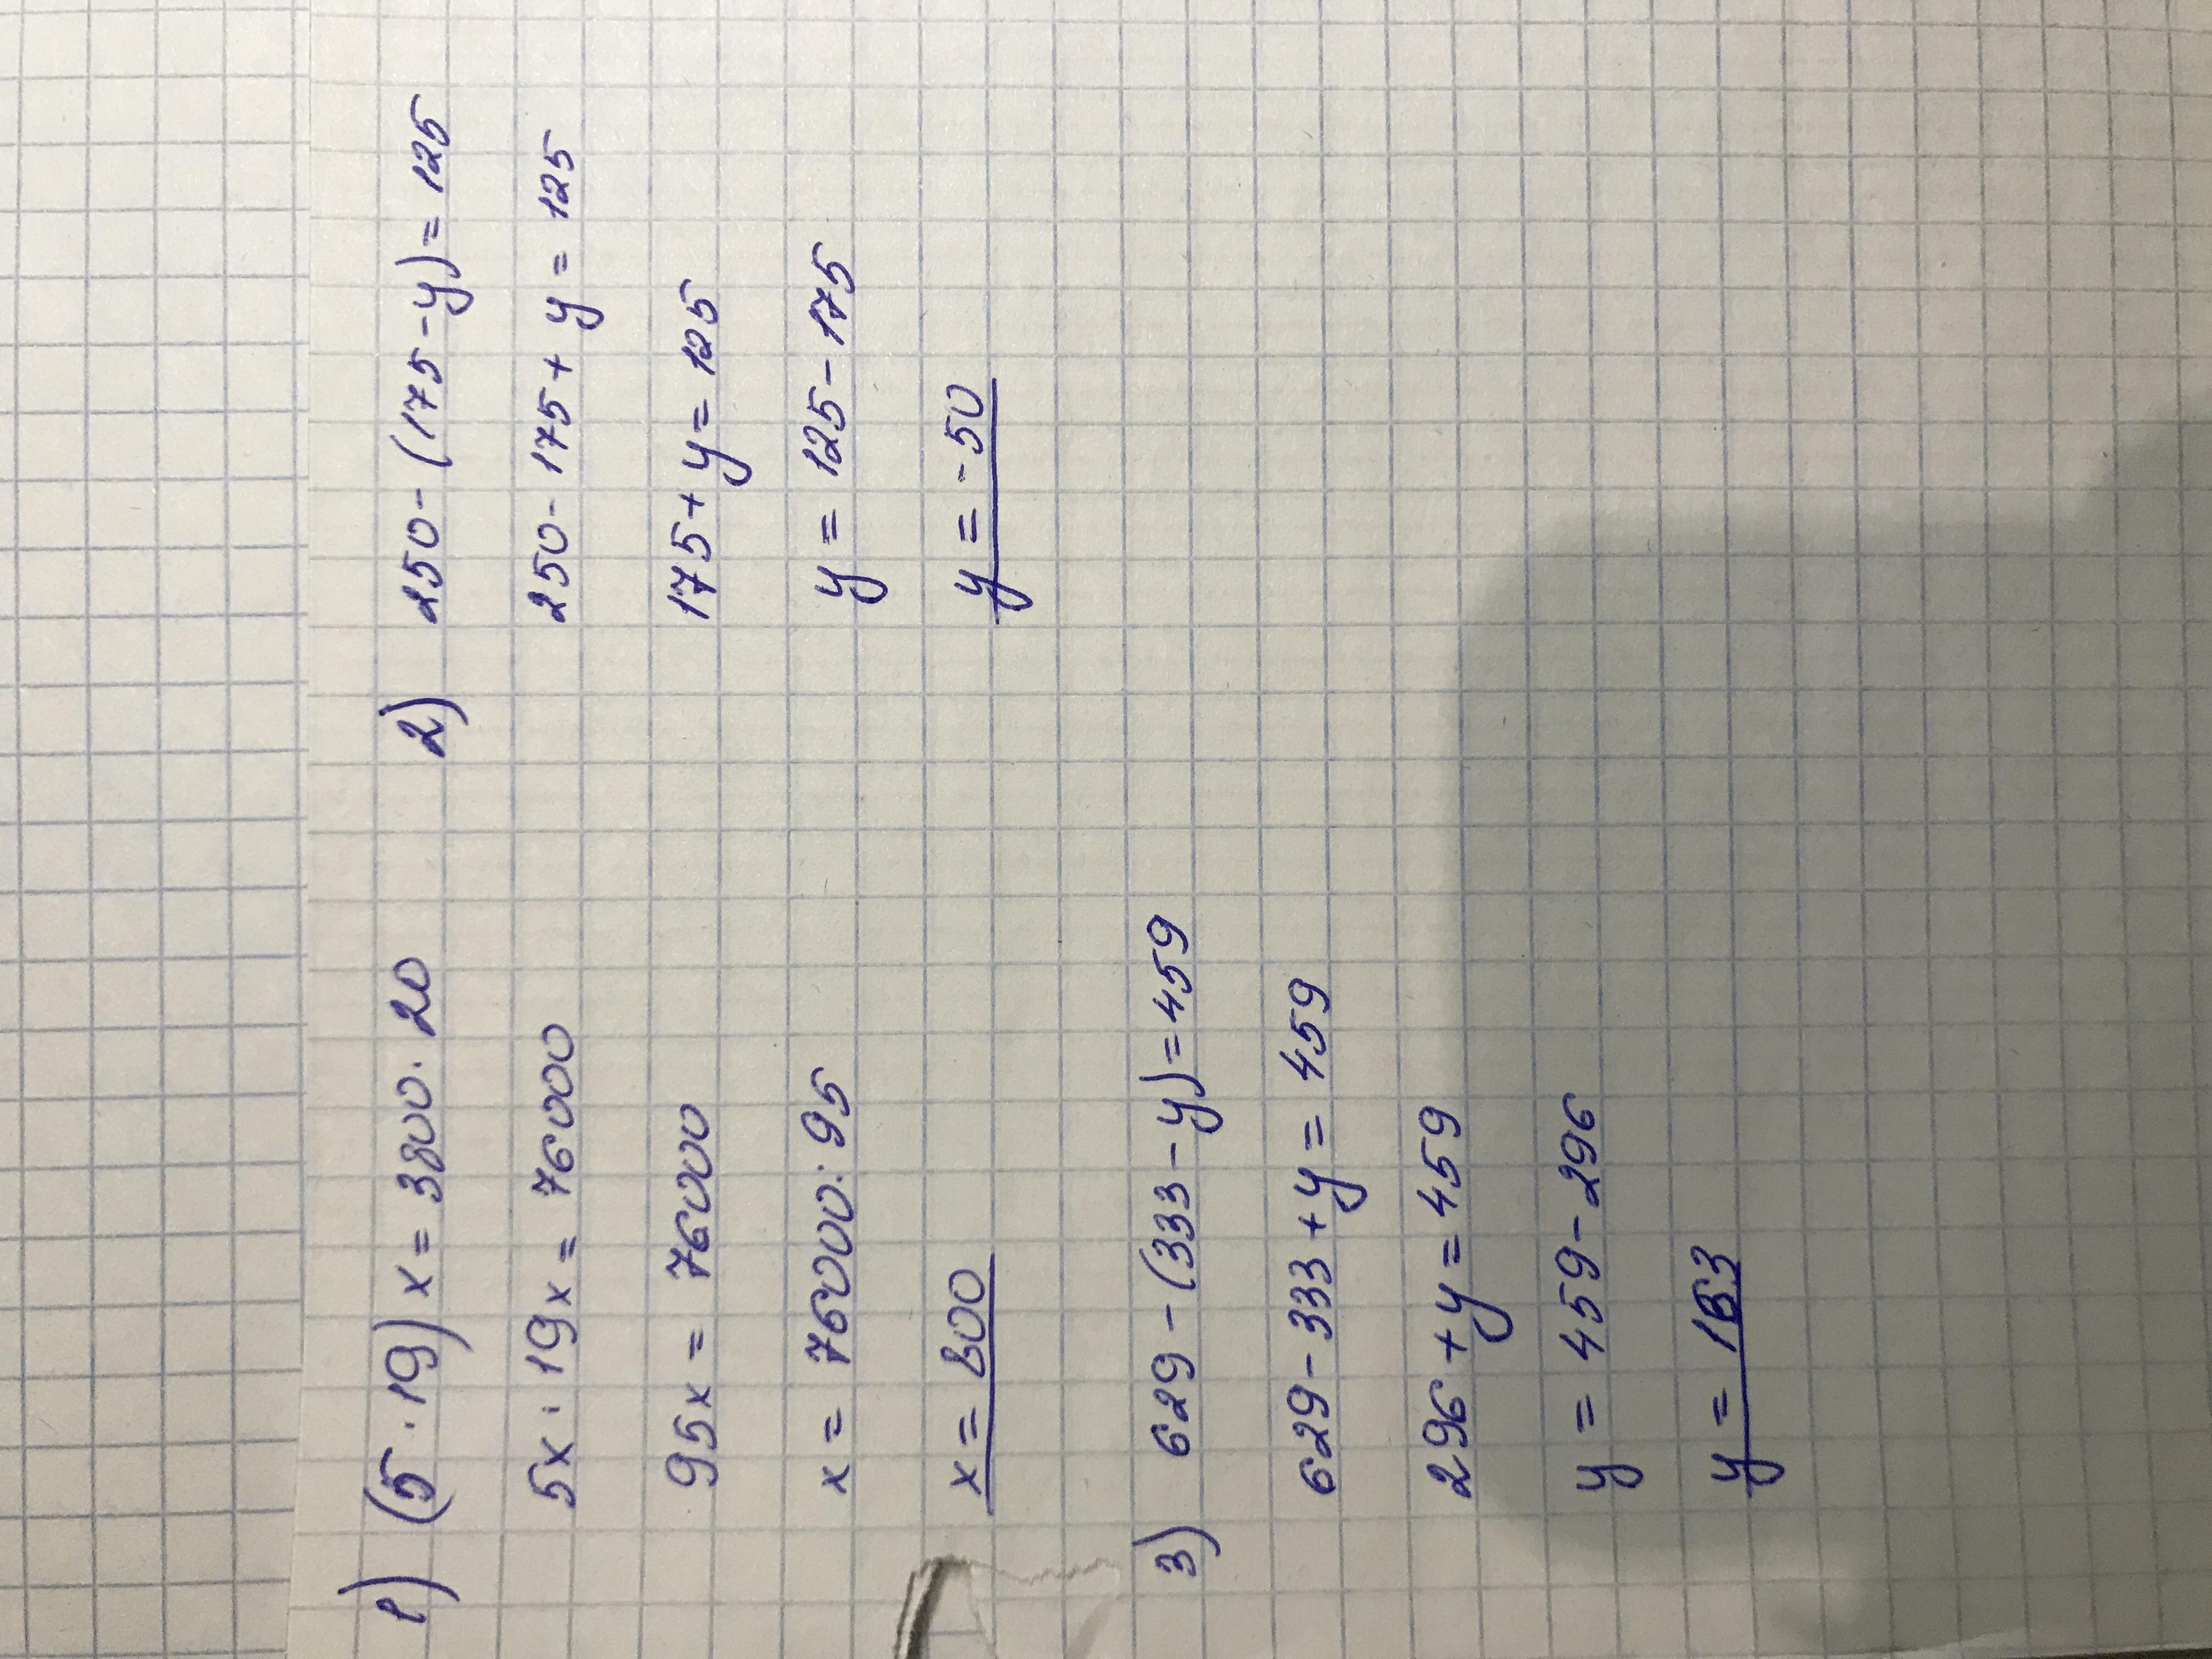 1) (5 · 19) x = 3800 · 20
5x · 19x = 76000
95x = 76000
x = 76000 : 95
x = 800
2) 250 - (175 - y) = 125
250 - 175 + y = 125
175 + y = 125
y = 125 - 175
y = -50
3) 629 - (333 - y) = 459
629 - 333 + y = 459
296 + y = 459
y = 459 - 296
y = 163